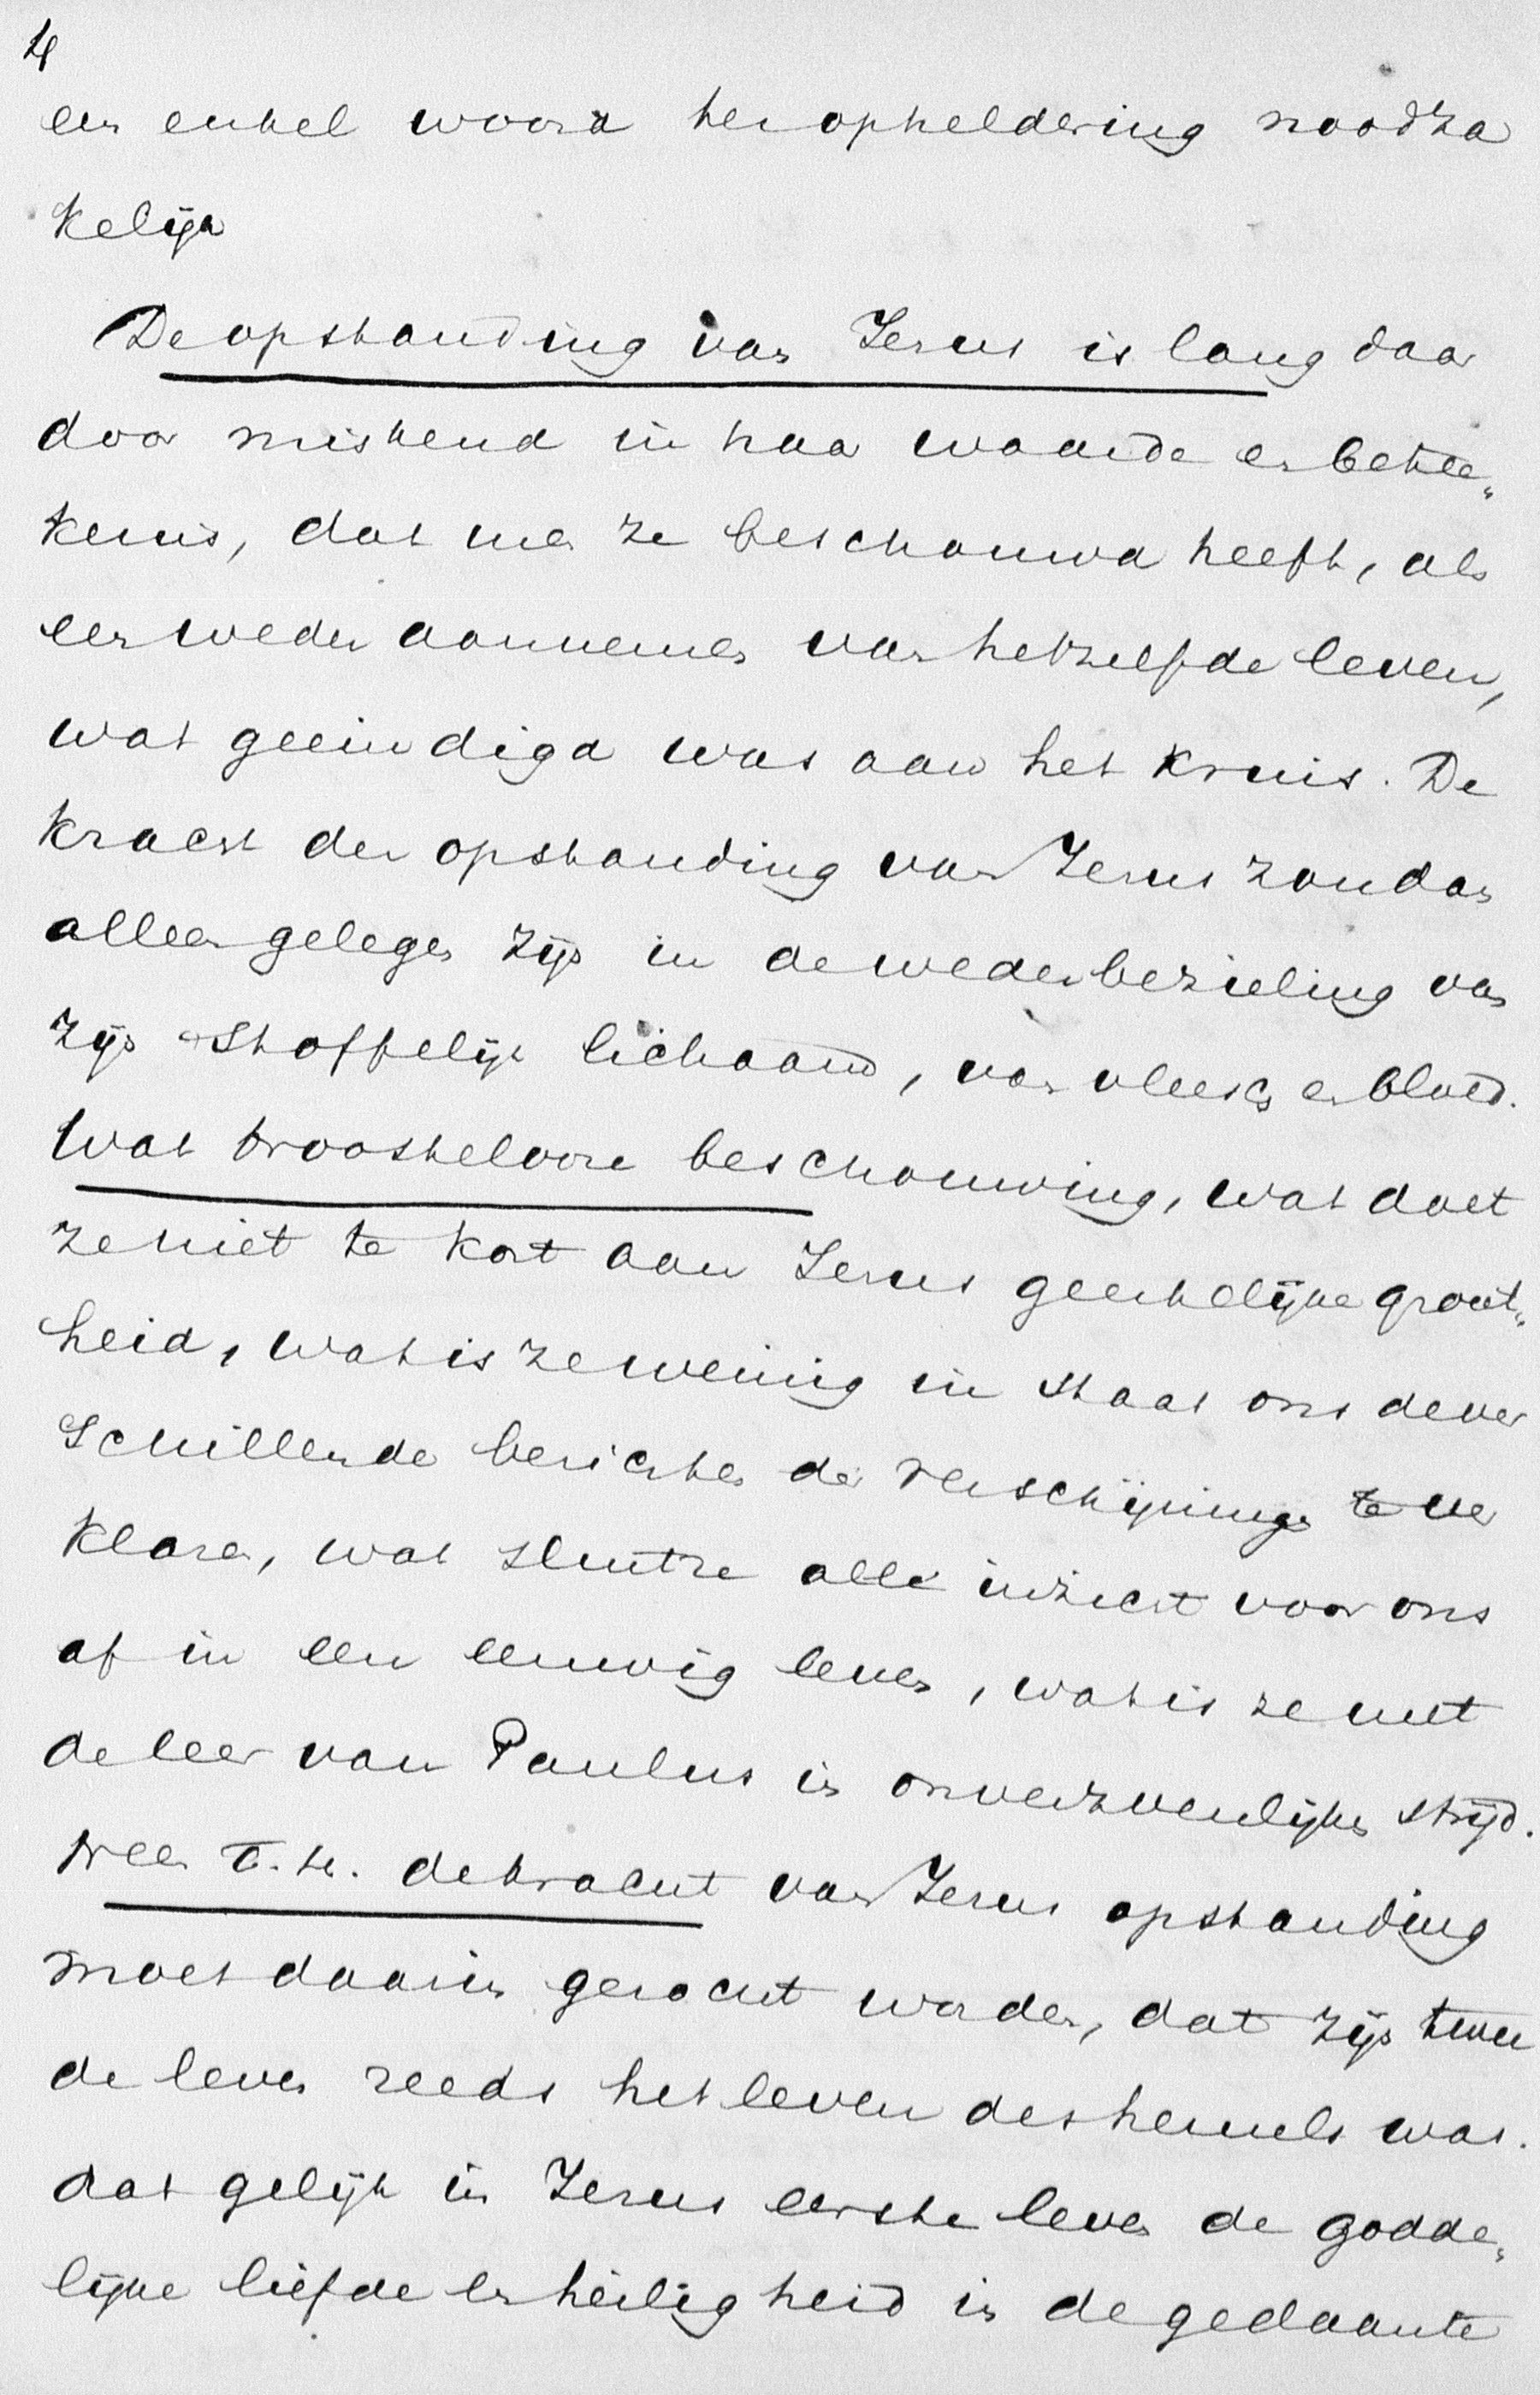 4
een enkel woord ter opheldering noodza
kelijk
De opstanding van Jezus is lang daar
door miskend in haar waarde en betee„
kenis, dat men ze beschouwd heeft, als
een weder aannemen van hetzelfde leven,
wat geeindigd was aan het kruis. De
kracht der opstanding van Jezus zou dan
alleen gelegen zijn in de wederbezieling van
zijn stoffelijk lichaam, van vleesch en bloed.
Wat troostelooze beschouwing, wat doet
ze niet te kort aan Jezus geestelijke groot„
heid, wat is ze weinig in staat ons de ver
schillende berichten der verschijningen te ver
klaren, wat sluit ze alle inzicht voor ons
af in een eeuwig leven, wat is ze met
de leer van Paulus in onverzoenlijken strijd.
Neen T. H. de kracht van Jezus opstanding
moet daarin gezocht worden, dat zijn twee
de leven reeds het leven des hemels was.
dat gelijk in Jezus eerste leven de godde„
lijke liefde en heiligheid in de gedaante